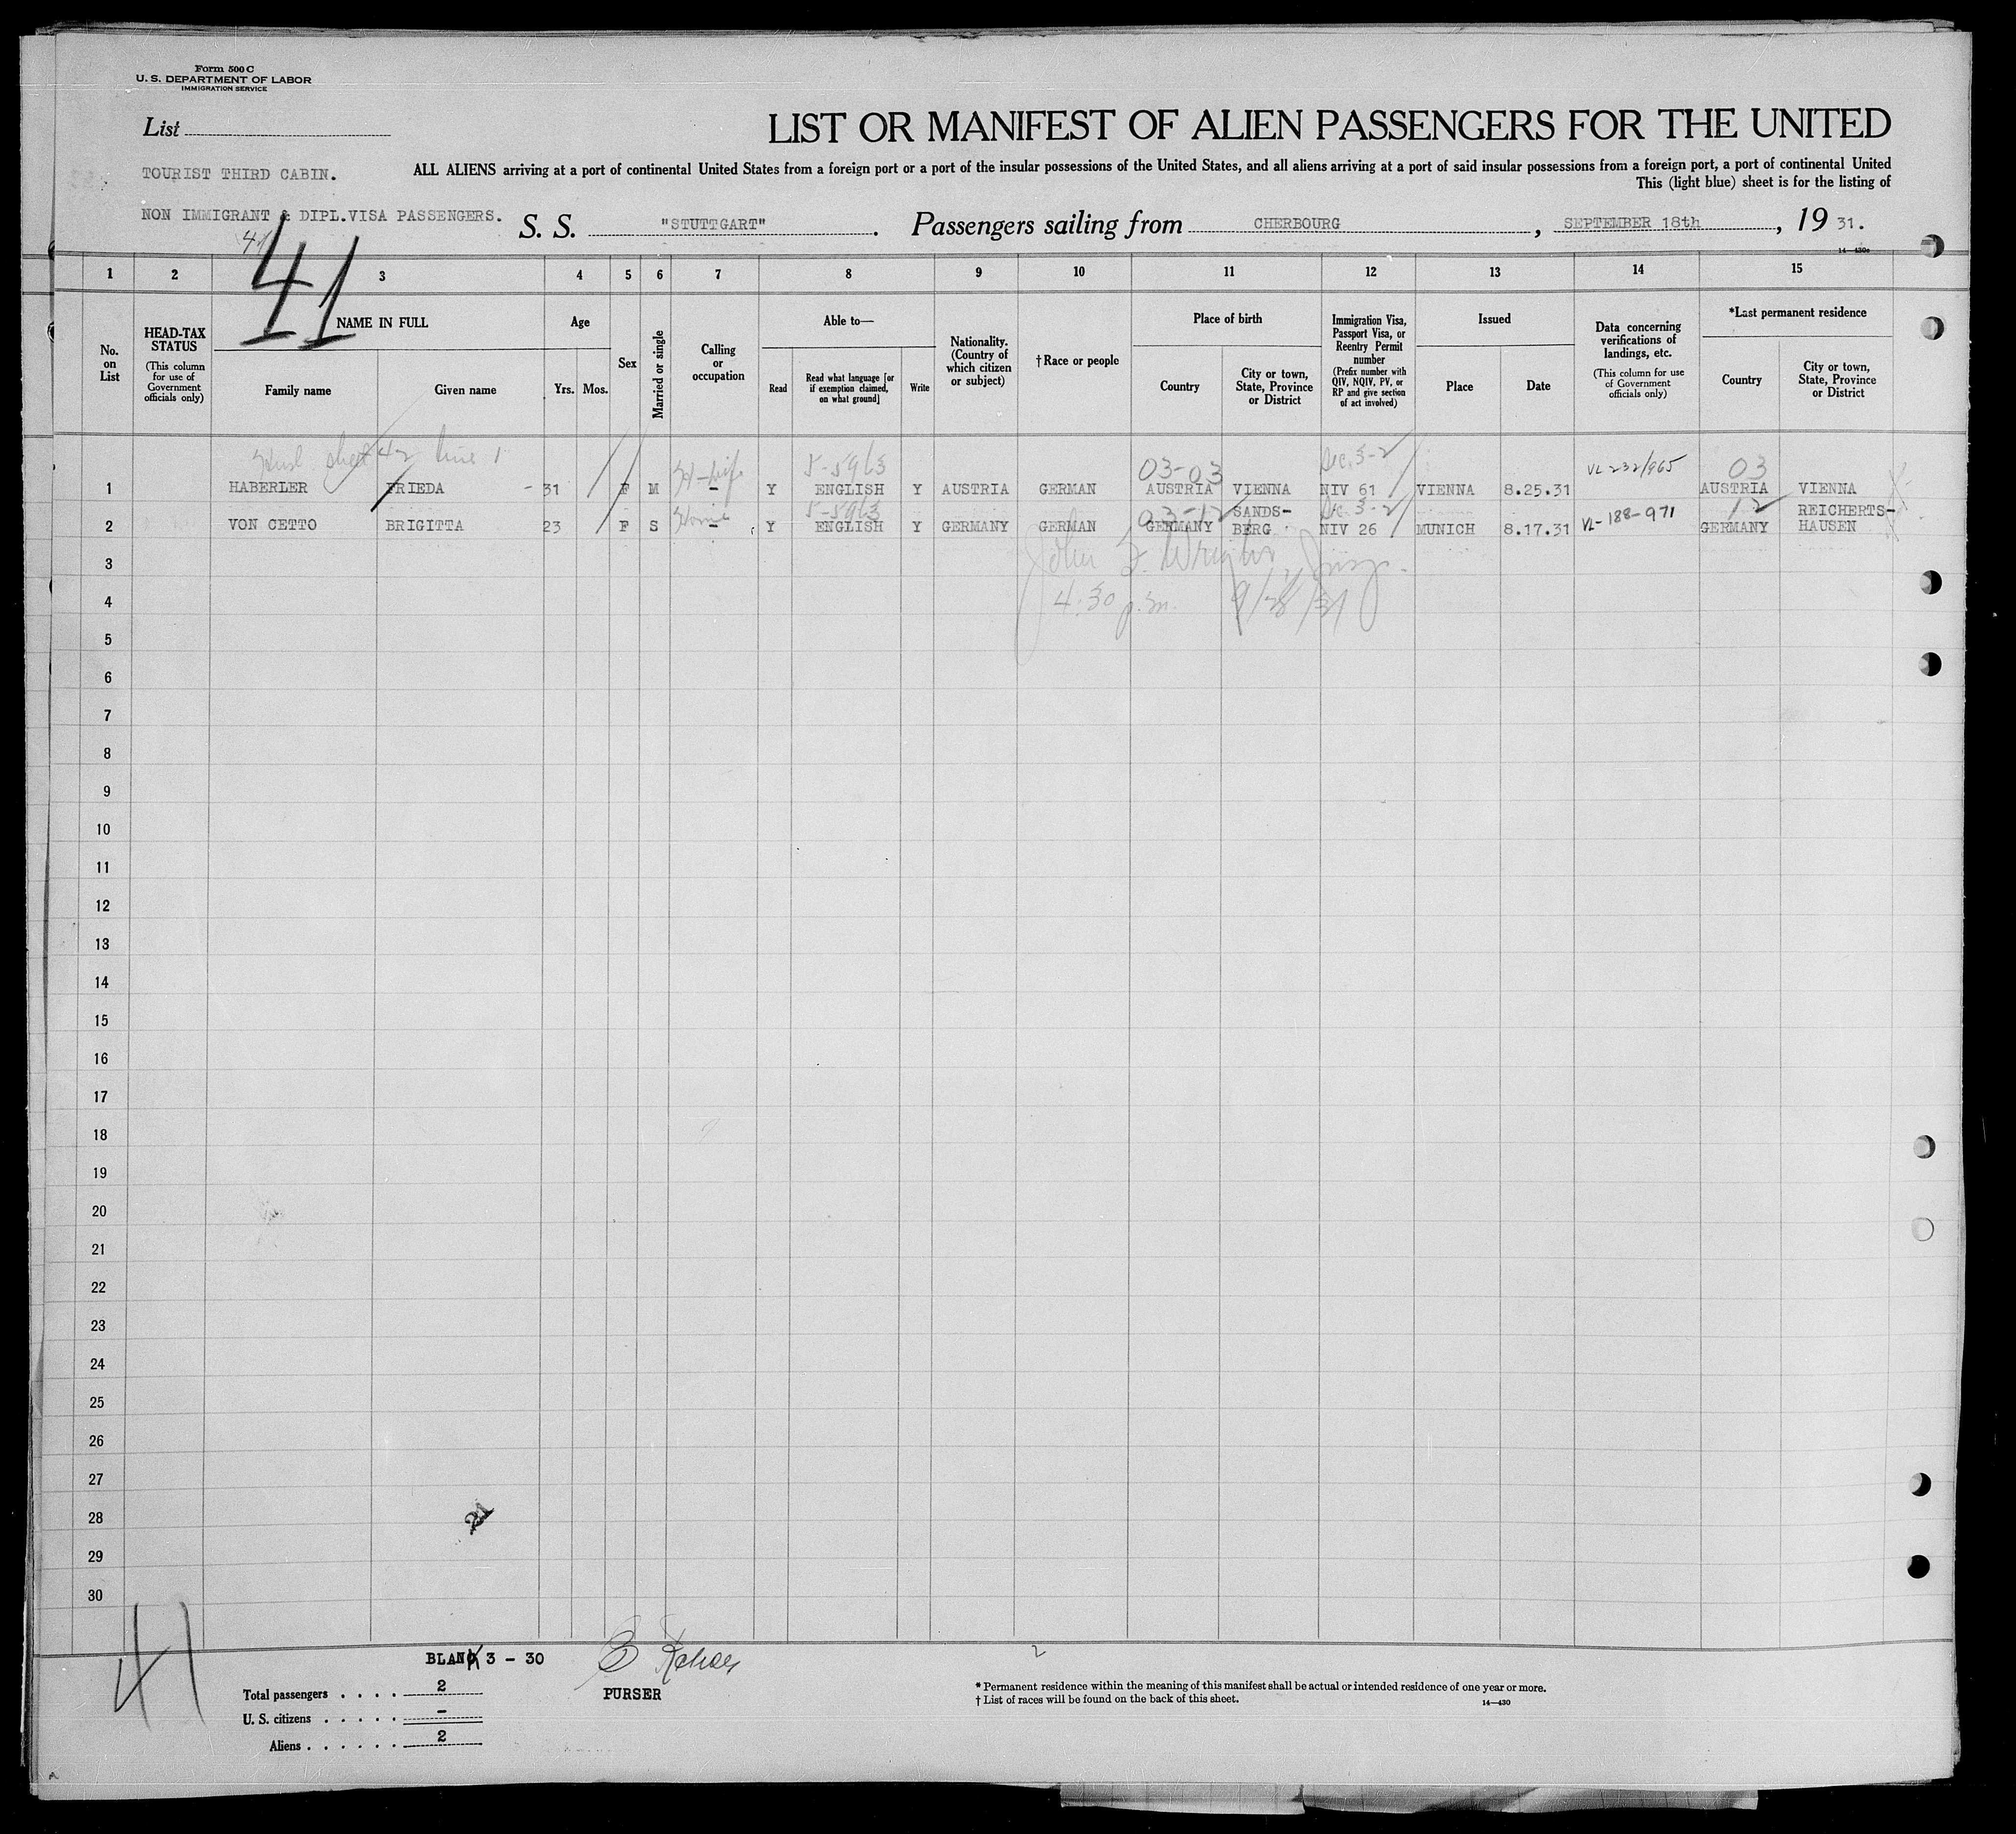 Form 500 C
U. S. DEPARTMENT OF LABOR
IMMIGRATION SERVICE
List
LIST OR MANIFEST OF ALIEN PASSENGERS FOR THE UNITED
TOURIST THIRD CABIN.
ALL ALIENS arriving at a port of continental United States from a foreign port or a port of the insular possessions of the United States, and all aliens arriving at a port of said insular possessions from a foreign port, a port of continental United
This (light blue) sheet is for the listing of
NON IMMIGRANT & DIPL.VISA PASSENGERS.
S. S. "STUTTGART". Passengers sailing from CHERBOURG, SEPTEMBER 18th, 19 31.
41
41
1 2 3 4 5 6 7 8 9 10 11 12 13 14 15
No. on List
HEAD-TAX STATUS
(This column for use of Government officials only)
NAME IN FULL
Family name
Given name
Age
Yrs. Mos.
Sex
Married or single
Calling or occupation
Able to—
Read
Read what language [or if exemption claimed, on what ground]
Write
Nationality. (Country of which citizen or subject)
†Race or people
Place of birth
Country
City or town, State, Province or District
Immigration Visa, Passport Visa, or Reentry Permit number
(Prefix number with QIV, NQIV, PV, or RP and give section of act involved)
Issued
Place
Date
Data concerning verifications of landings, etc.
(This column for use of Government officials only)
*Last permanent residence
Country
City or town, State, Province or District
sheet 42 line 1
H-wife 5-5963 03-03 Sec. 3-2 VL 232/965 03
1 HABERLER FRIEDA - 31 F M - Y ENGLISH Y AUSTRIA GERMAN AUSTRIA VIENNA NIV 61 VIENNA 8.25.31 AUSTRIA VIENNA
Home 5-5963 03-12 Sec. 3-2 VL-188-971 12
2 VON CETTO BRIGITTA 23 F S - Y ENGLISH Y GERMANY GERMAN GERMANY SANDS-BERG NIV 26 MUNICH 8.17.31 GERMANY REICHERTS-HAUSEN
3 John F. Wright, Insp.
4 4:30 p.m. 9/28/31
5
6
7
8
9
10
11
12
13
14
15
16
17
18
19
20
21
22
23
24
25
26
27
28
29
30
41
BLANK 3 - 30
2
PURSER
Total passengers . . . . 2
U. S. citizens . . . . . -
Aliens . . . . . . 2
* Permanent residence within the meaning of this manifest shall be actual or intended residence of one year or more.
† List of races will be found on the back of this sheet.
14—430